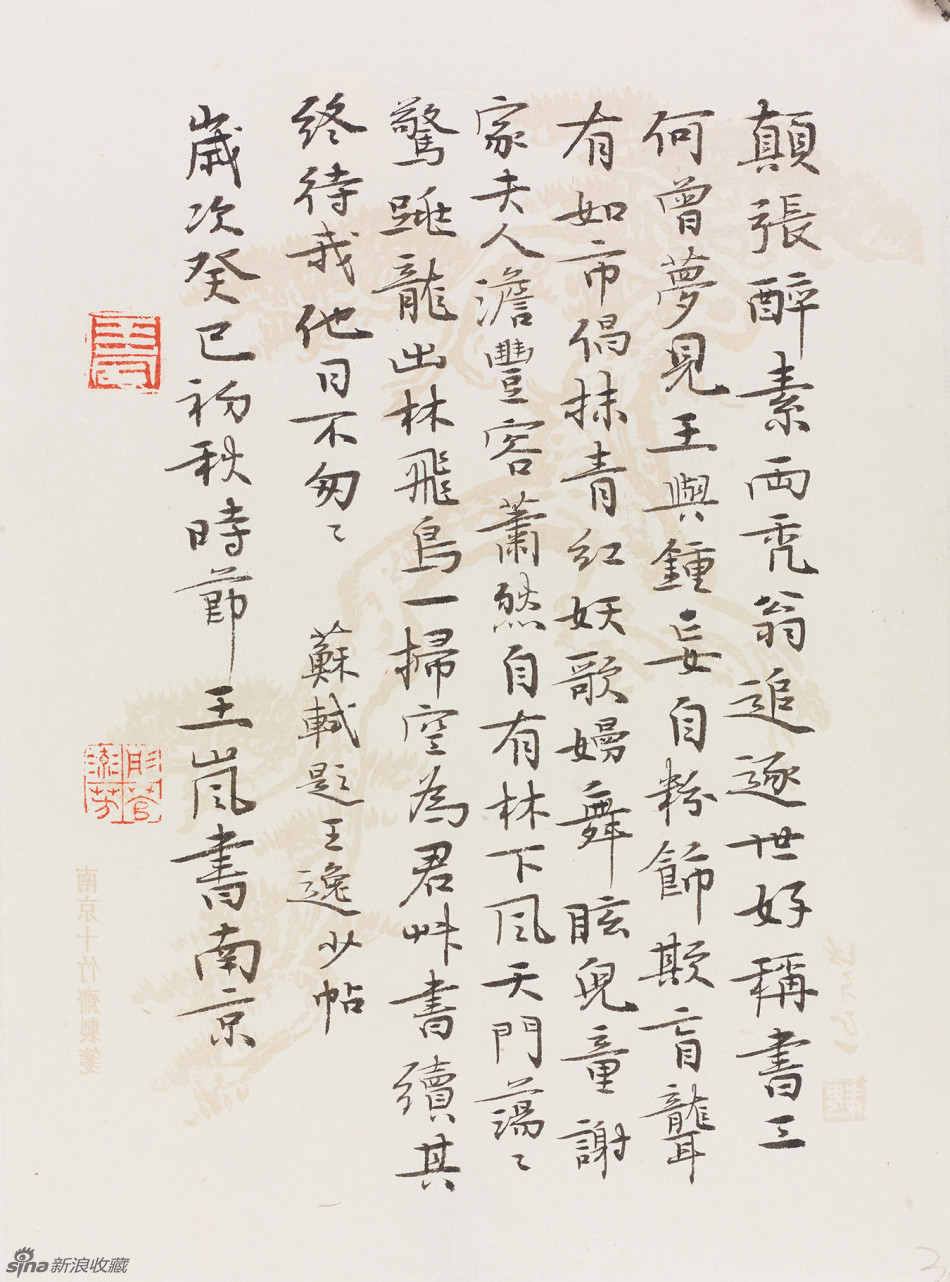 顛張醉素兩禿翁追逐世好稱書工
何曾夢見王與鍾妄自粉飾欺盲聾
有如市倡抹青紅妖歌嫚舞眩兒童謝
家夫人澹豐容蕭然自有林下風天門蕩〻
驚跳龍出林飛鳥一掃空為君艸書續其
終待我他日不匆〻 蘇軾題王逸少帖
歲次癸巳初秋時節 王嵐書南京
南京十竹齋製箋
sina新浪收藏